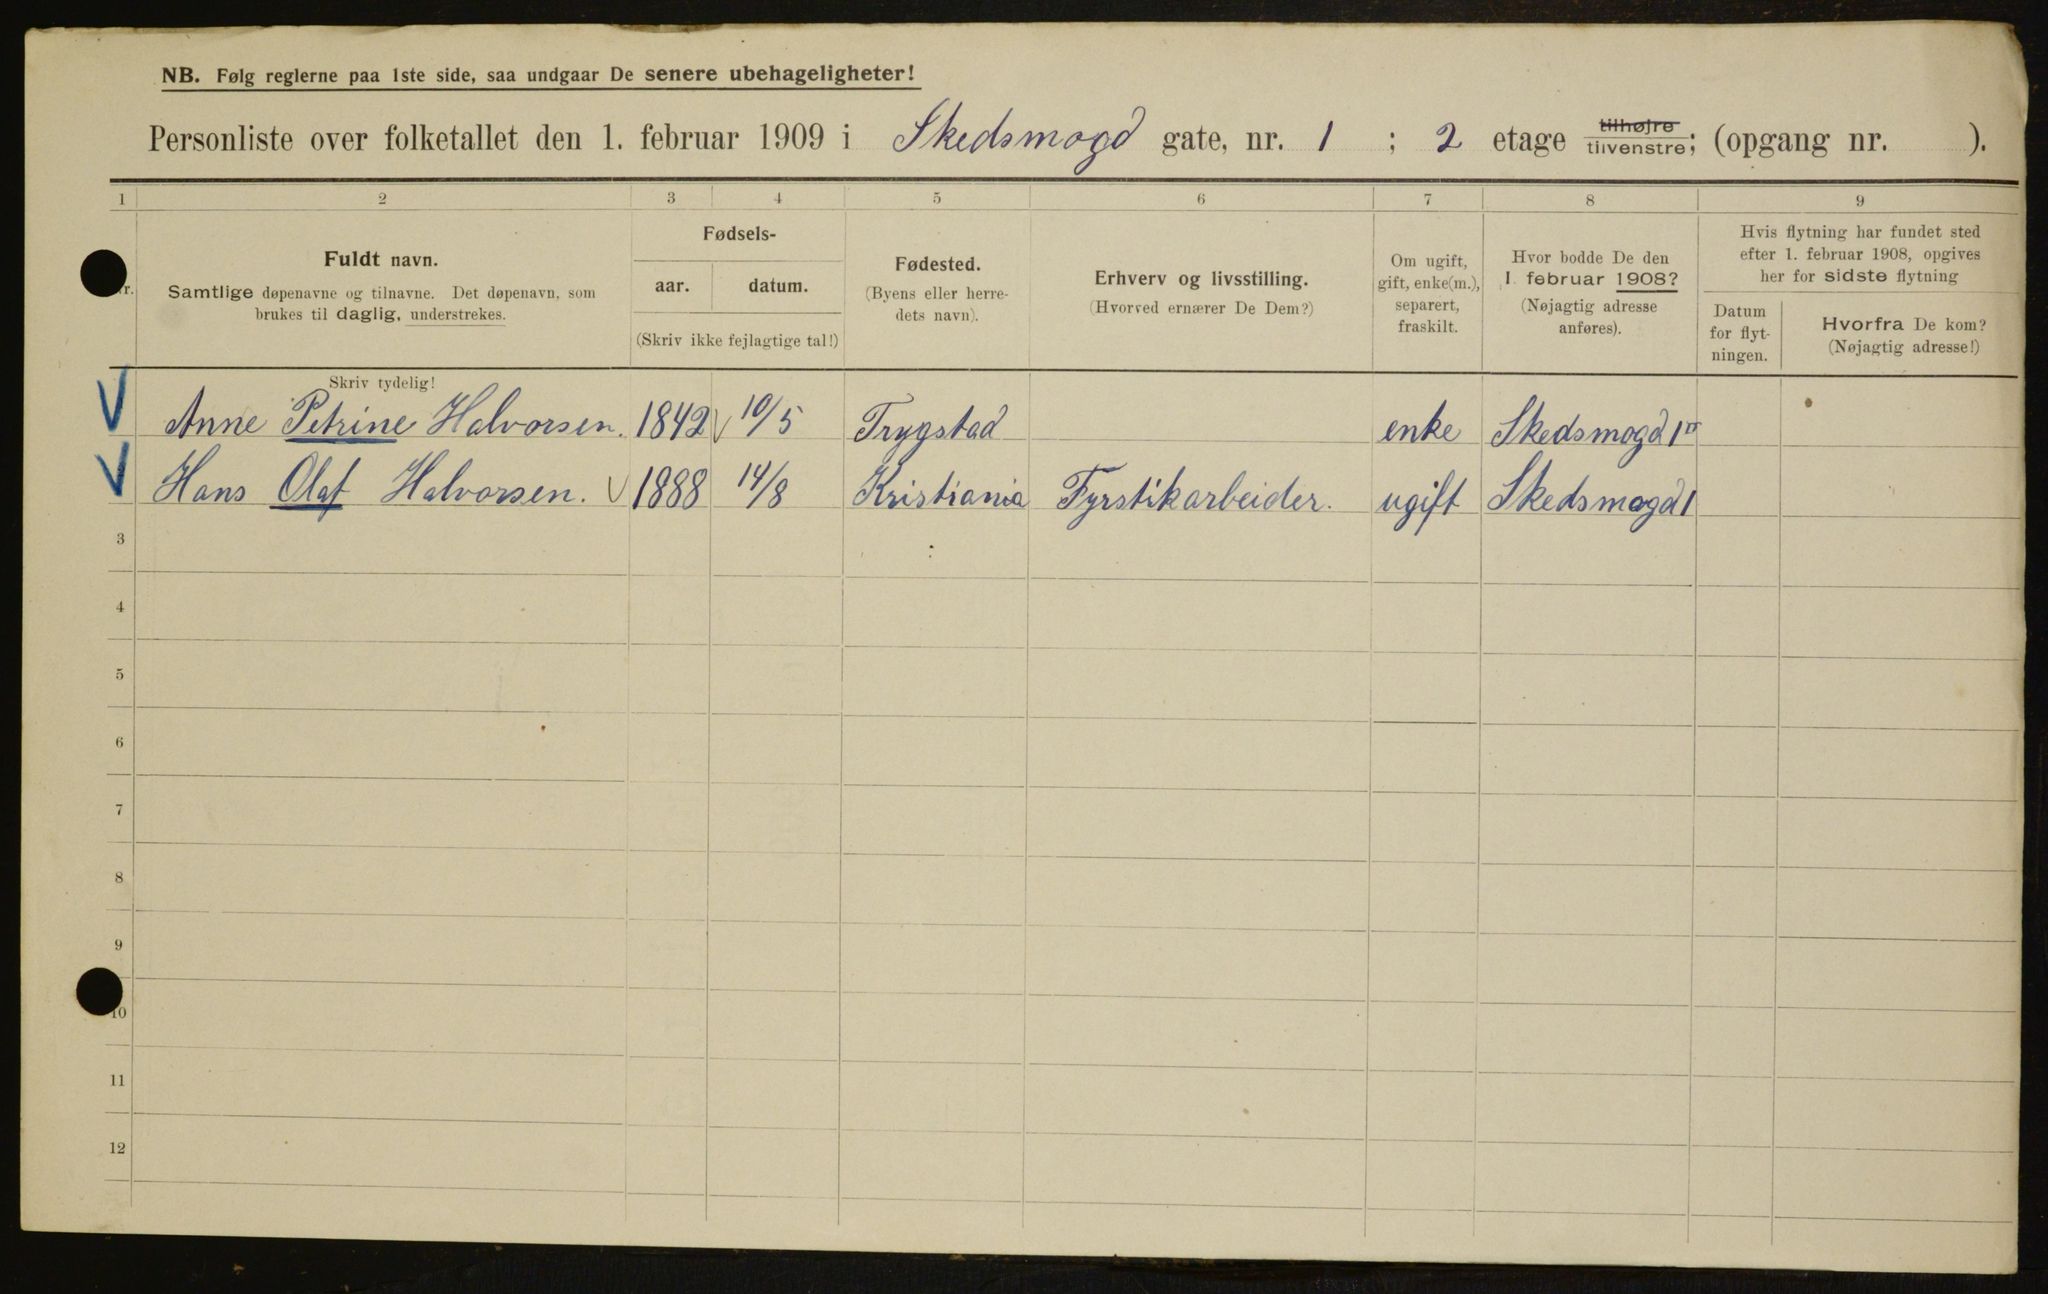 NB. Følg reglerne paa 1ste side, saa undgaar De senere ubehageligheter!
Personliste over folketallet den 1. februar 1909 i Skedsmogd gate, nr. 1 ; 2 etage tilhøjre tilvenstre; (opgang nr. ).
1 2 3 4 5 6 7 8 9
Nr.
Fuldt navn.
Samtlige døpenavne og tilnavne. Det døpenavn, som
brukes til daglig, understrekes.
Fødsels-
aar. datum.
(Skriv ikke fejlagtige tal!)
Fødested.
(Byens eller herre-
dets navn).
Erhverv og livsstilling.
(Hvorved ernærer De Dem?)
Om ugift,
gift, enke(m.),
separert,
fraskilt.
Hvor bodde De den
1. februar 1908?
(Nøjagtig adresse
anføres).
Hvis flytning har fundet sted
efter 1. februar 1908, opgives
her for sidste flytning
Datum
for flyt-
ningen.
Hvorfra De kom?
(Nøjagtig adresse!)
Skriv tydelig!
Anne Petrine Halvorsen. 1842 10/5 Trygstad enke Skedsmogd 1
Hans Olaf Halvorsen. 1888 14/8 Kristiania Fyrstikarbeider. ugift Skedsmogd 1
3
4
5
6
7
8
9
10
11
12